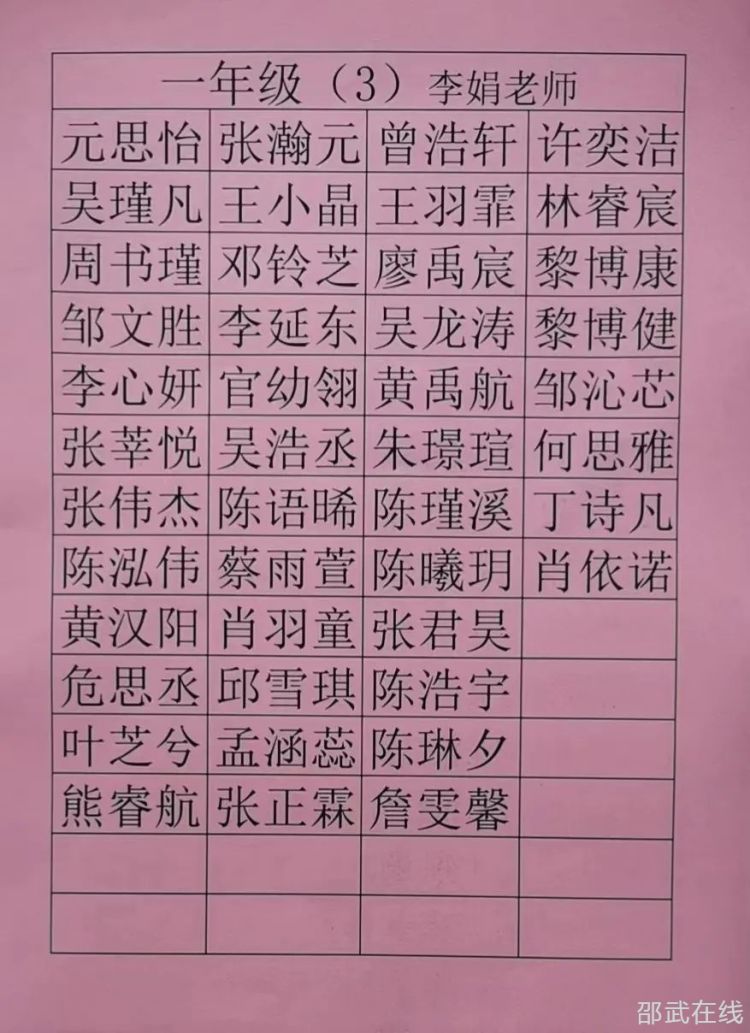 一年级（3）李娟老师
元思怡 张瀚元 曾浩轩 许奕洁
吴瑾凡 王小晶 王羽霏 林睿宸
周书瑾 邓铃芝 廖禹宸 黎博康
邹文胜 李延东 吴龙涛 黎博健
李心妍 官幼翎 黄禹航 邹沁芯
张莘悦 吴浩丞 朱璟瑄 何思雅
张伟杰 陈语晞 陈瑾溪 丁诗凡
陈泓伟 蔡雨萱 陈曦玥 肖依诺
黄汉阳 肖羽童 张君昊
危思丞 邱雪琪 陈浩宇
叶芝兮 孟涵蕊 陈琳夕
熊睿航 张正霖 詹雯馨
邵武在线